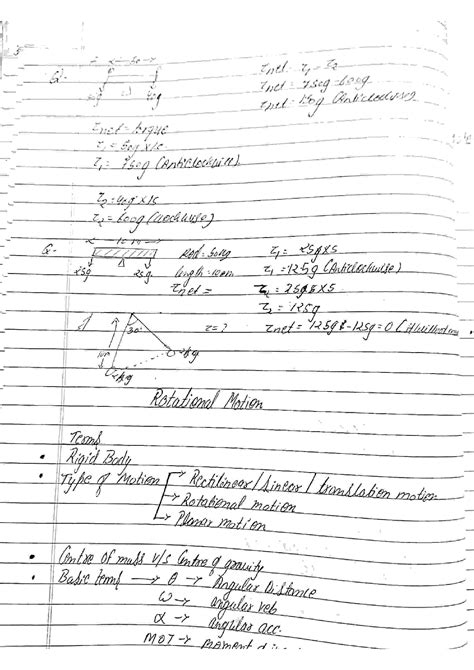 Q- 10
50g ω 40g
τnet = τ1 - τ2
τnet = 750g - 600g
τnet = 150g (Anticlockwise)
τnet = torque
τ1 = 50g×15
τ1 = 750g (Anticlockwise)
τ2 = 40g×15
τ2 = 600g (clockwise)
Q- 10m
Rod = 50kg
25g 25g length = 10m
τnet =
τ1 = 25g×5
τ1 = 125g (Anticlockwise)
τ2 = 25g×5
τ2 = 125g
30° τ = ? τnet = 125g - 125g = 0
Rotational Motion
Terms
• Rigid Body
• Type of Motion → Rectilinear / Linear / translation motion
→ Rotational motion
→ Planar motion
• Centre of mass v/s Centre of gravity
• Basic terms → θ → Angular Distance
ω → angular velo
α → angular acc.
MOI →